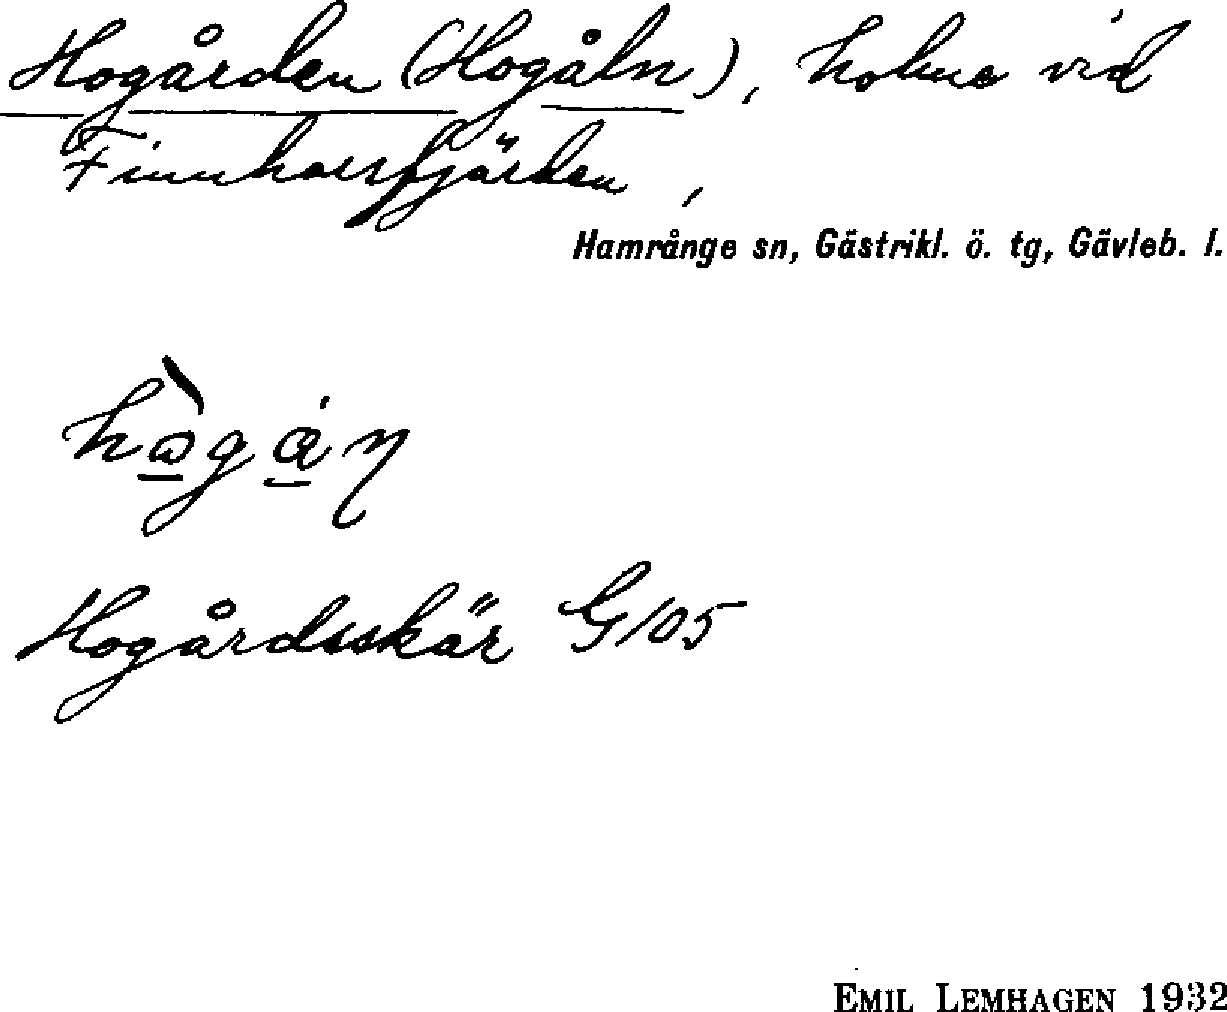 Hogården (Hogåln), holme vid
Finnharsfjärden,
Hamrånge sn, Gästrikl. ö. tg, Gävleb. l.
Hogårdsskär G105
EMIL LEMHAGEN 1932